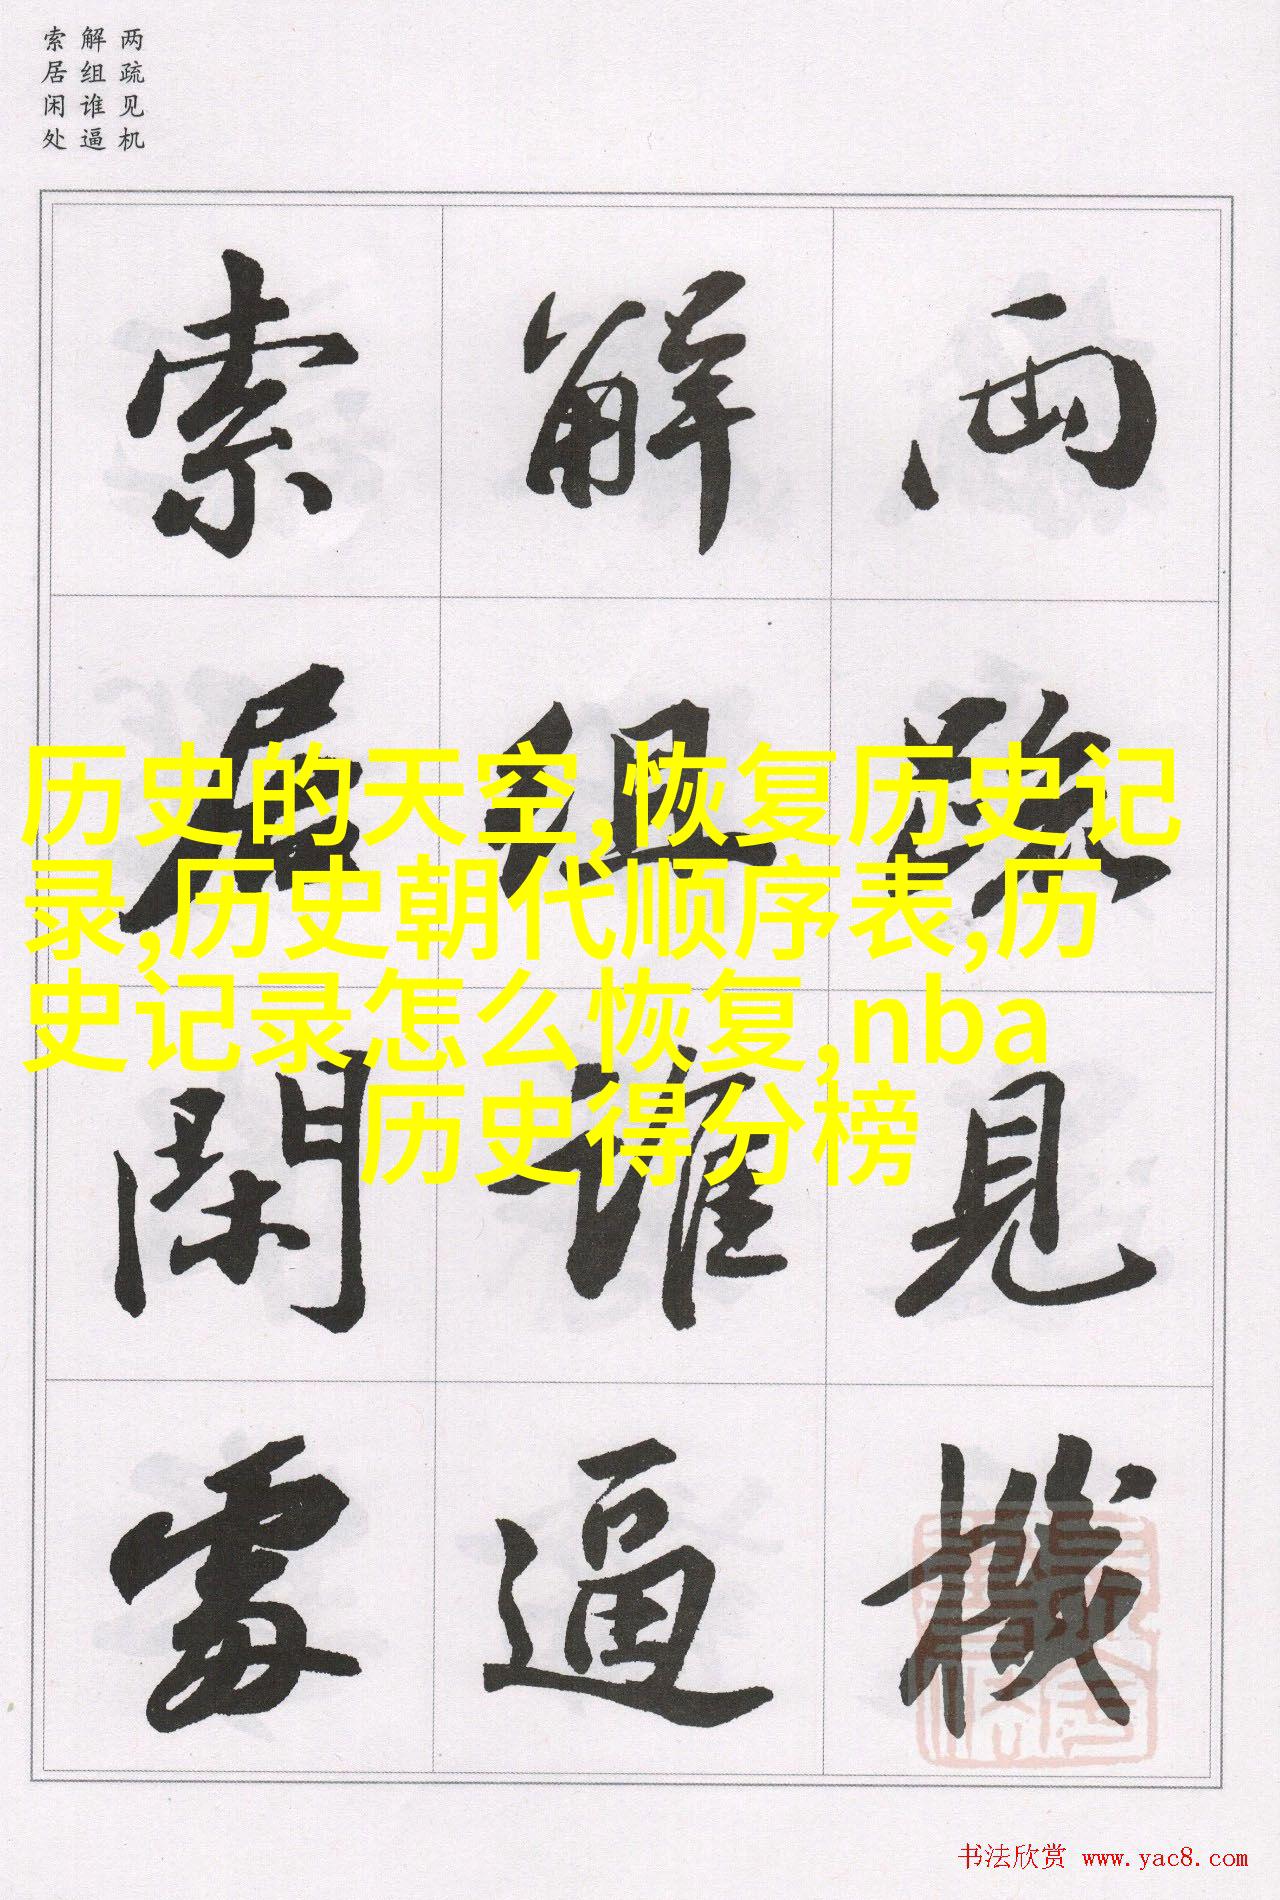 两疏见机
解组谁逼
索居闲处
两疏見機
解组谁逼
索居閑處
历史的天空,恢复历史记
录,历史朝代顺序表,历
史记录怎么恢复,nba
历史得分榜
书法欣赏 www.yac8.com